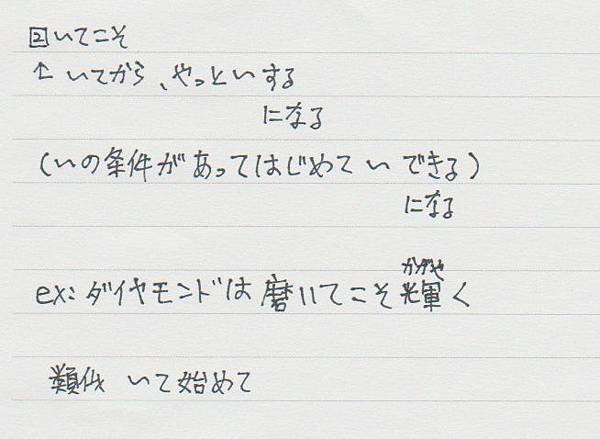 2 〜てこそ
↑ 〜てから、やっと〜する
になる
(〜の条件があってはじめて 〜 できる)
になる
かがや
ex: ダイヤモンドは磨いてこそ輝く
類似 〜て始めて